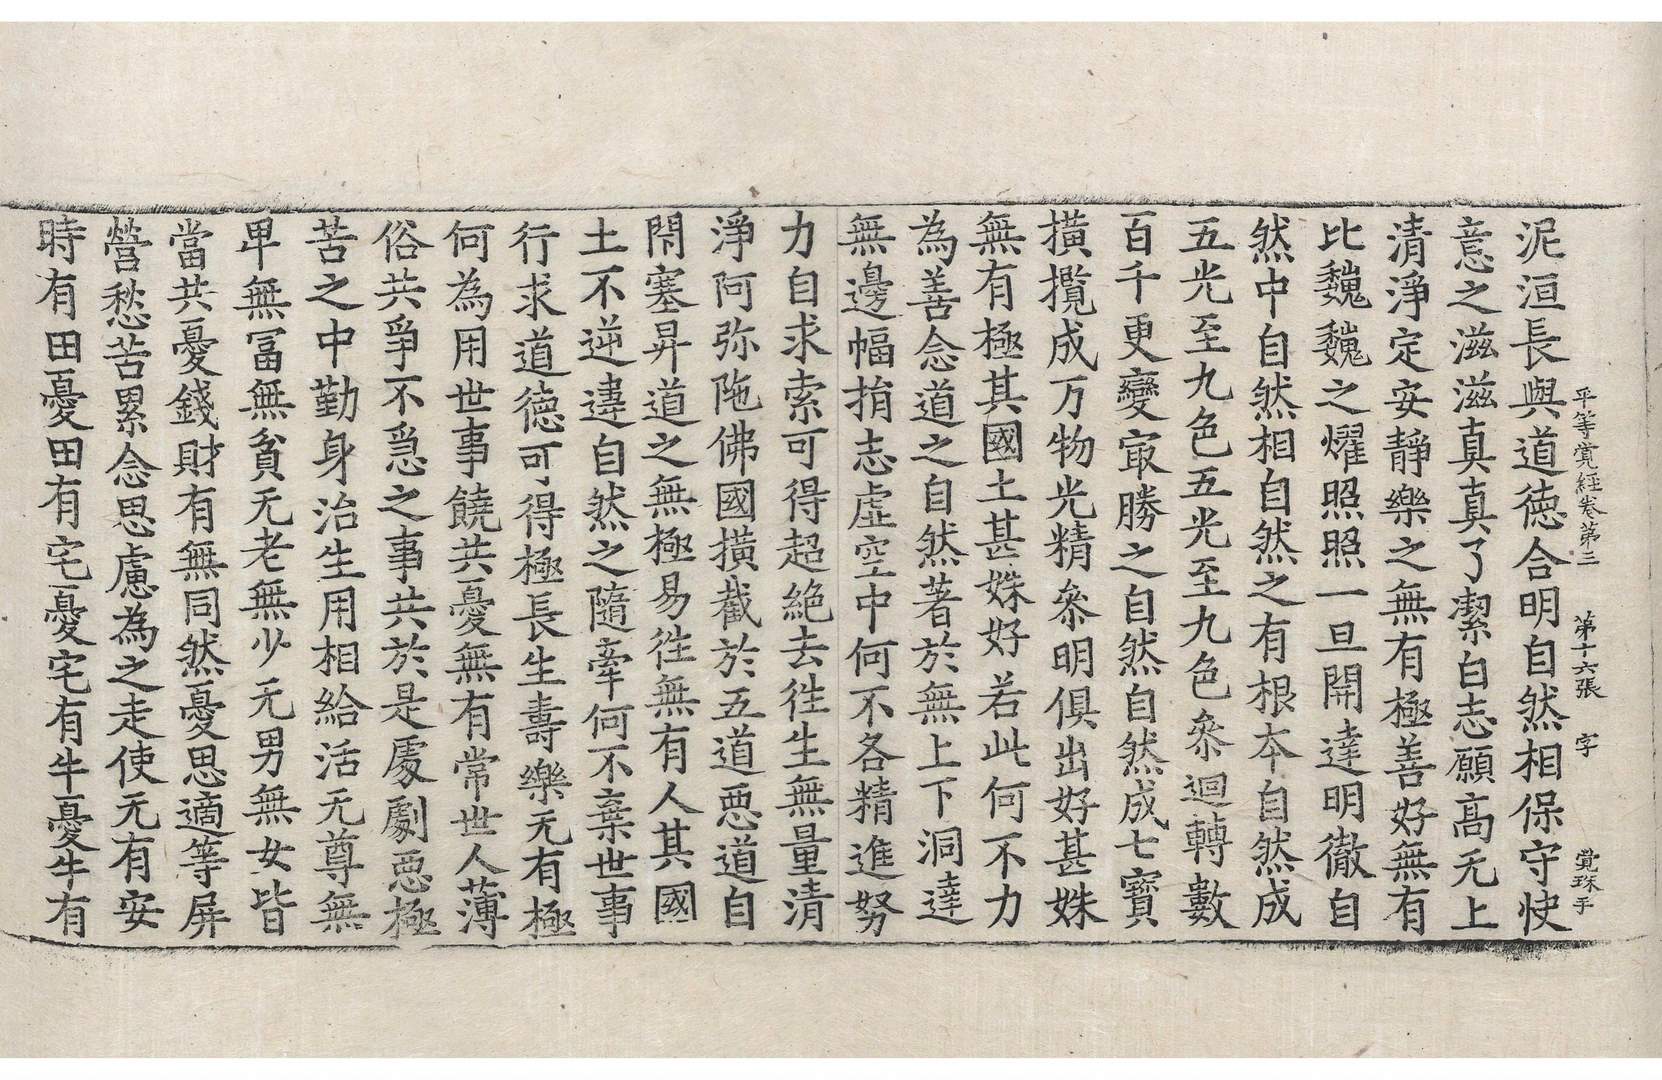 平等覺經卷第三 第十六張 字 覺珠手
泥洹長與道德合明自然相保守快
意之滋滋真真了潔白志願高无上
清淨定安靜樂之無有極善好無有
比巍巍之燿照照一旦開達明徹自
然中自然相自然之有根本自然成
五光至九色五光至九色叅迴轉數
百千更變㝡勝之自然自然成七寶
撗攬成万物光精叅明俱出好甚姝
無有極其國土甚姝好若此何不力
為善念道之自然著於無上下洞達
無邊幅捐志虛空中何不各精進努
力自求索可得超絶去徃生無量清
淨阿弥陁佛國撗截於五道惡道自
閇塞昇道之無極易徃無有人其國
土不逆違自然之隨牽何不棄世事
行求道德可得極長生壽樂无有極
何為用世事饒共憂無有常世人薄
俗共爭不急之事共於是處劇惡極
苦之中勤身治生用相給活无尊無
卑無冨無貧无老無少无男無女皆
當共憂錢財有無同然憂思適等屏
營愁苦累念思慮為之走使无有安
時有田憂田有宅憂宅有牛憂牛有